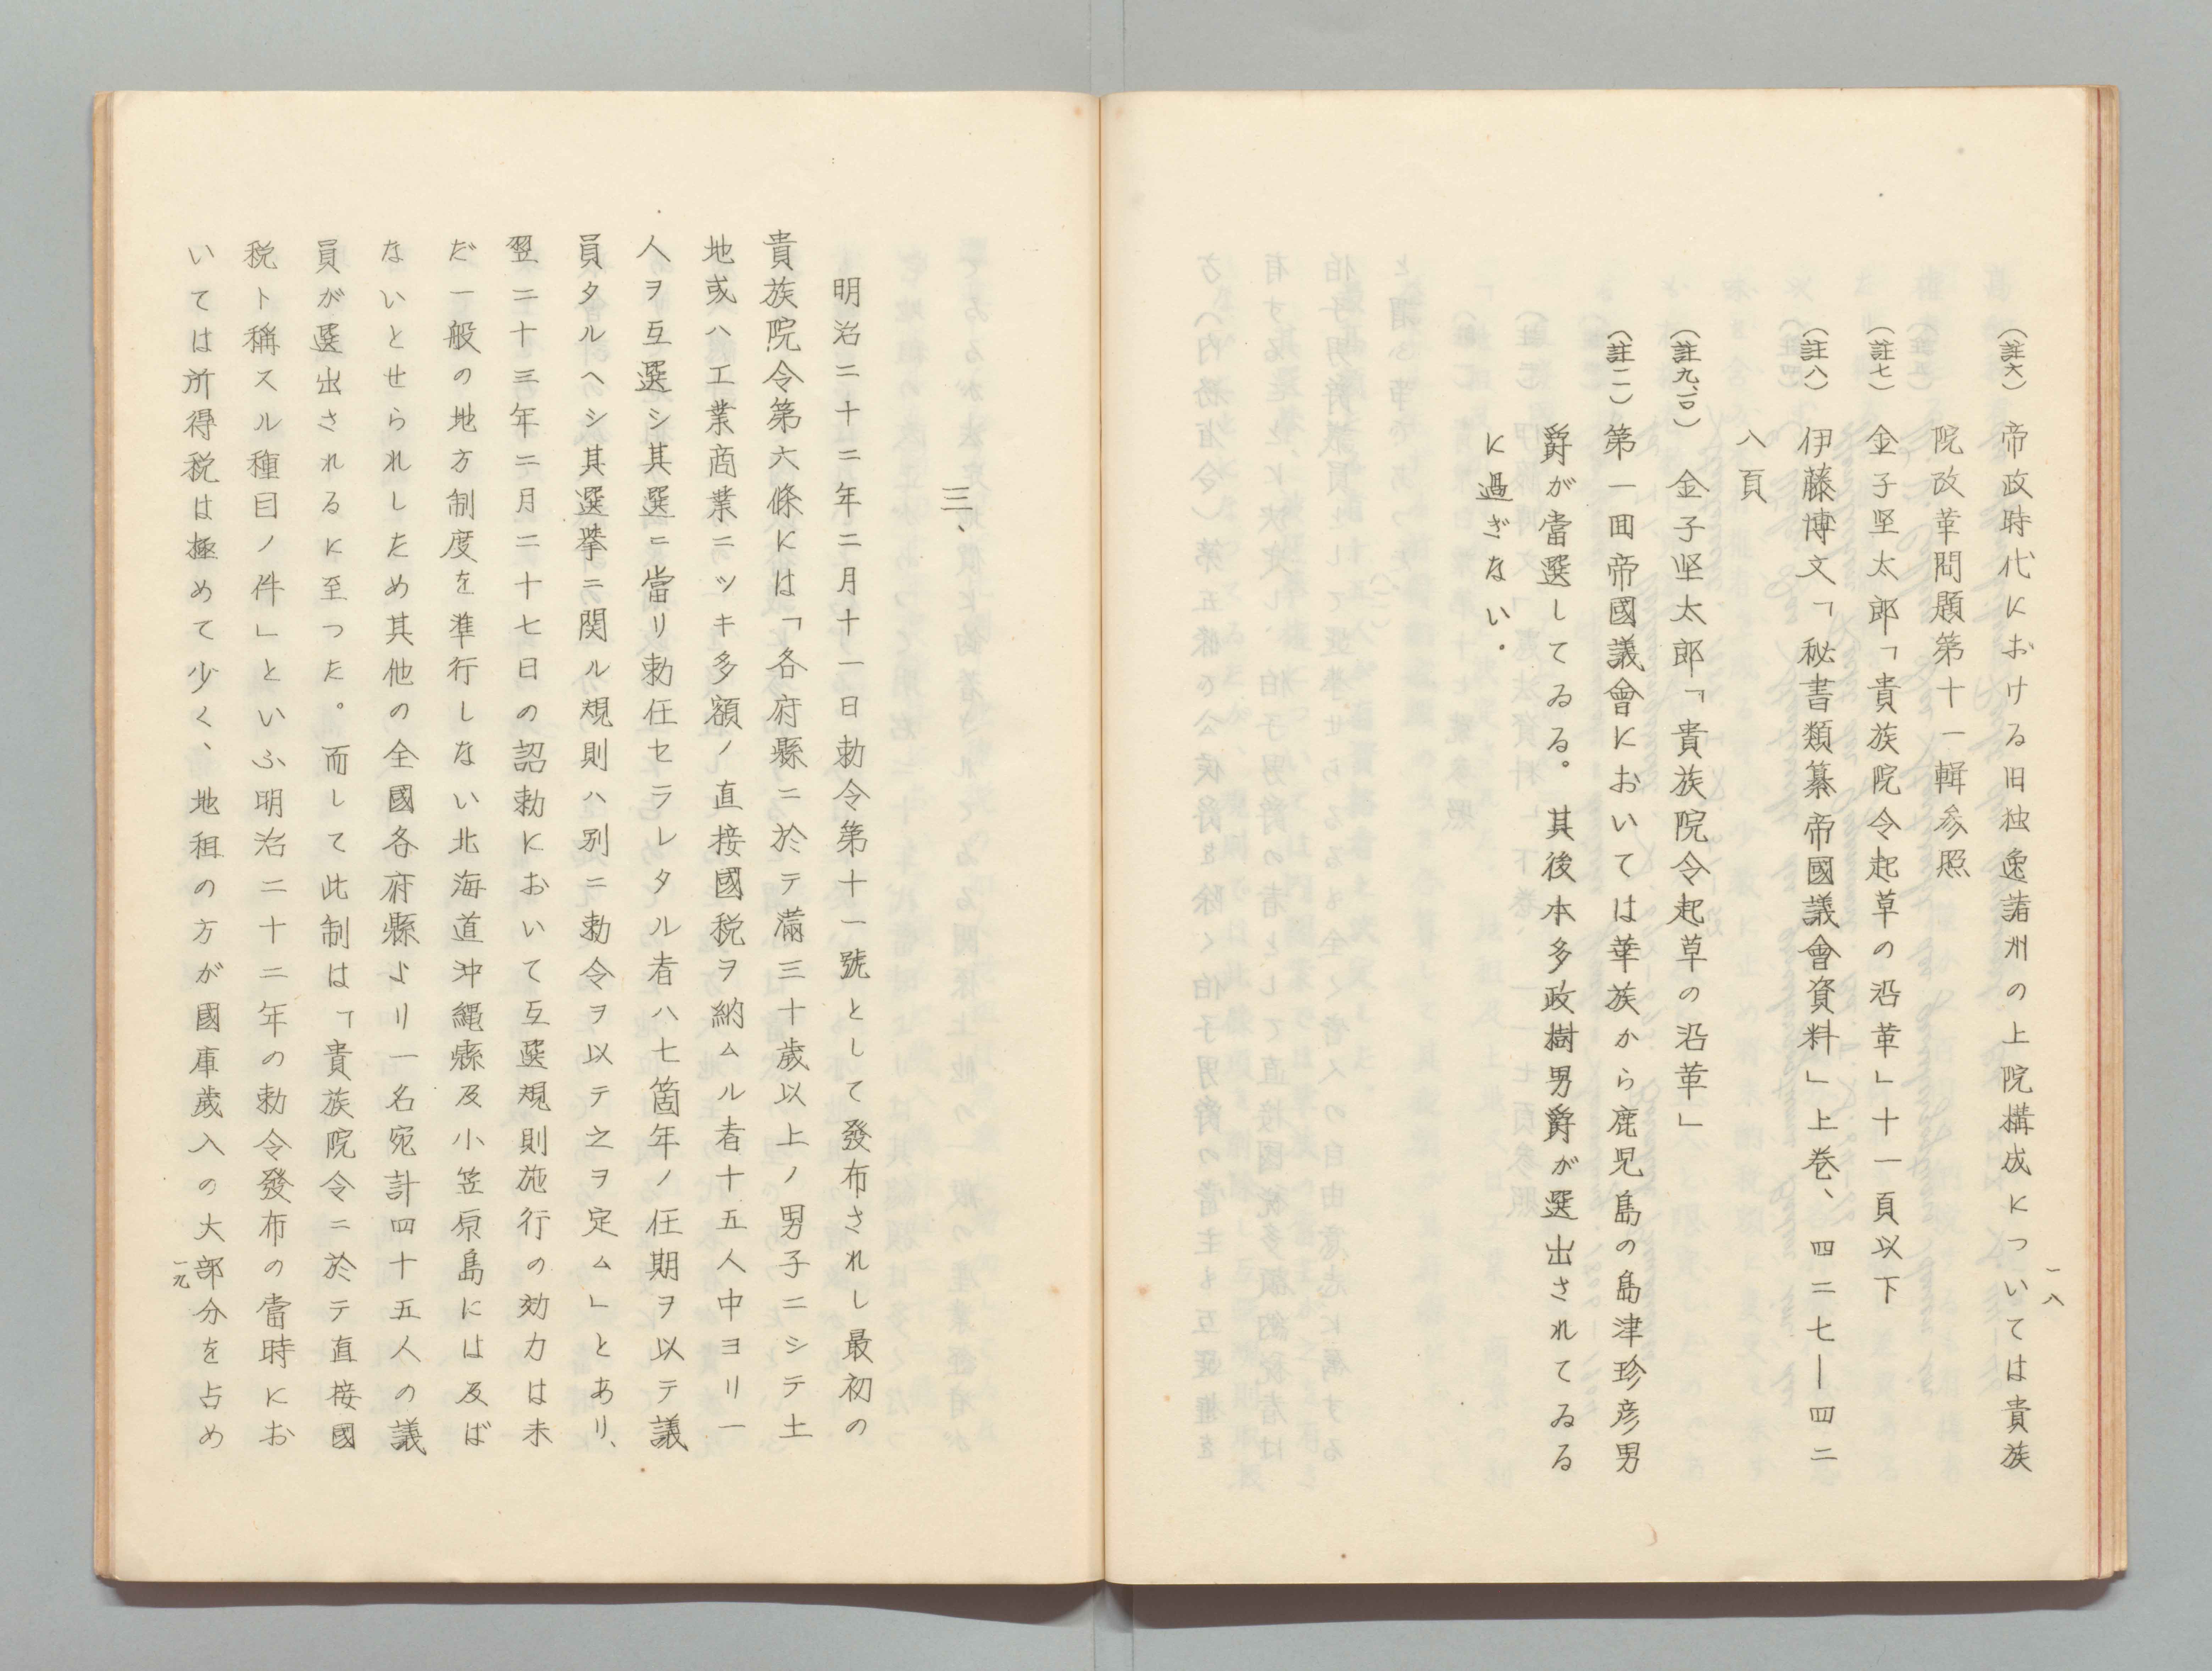 (註六) 帝政時代における旧独逸諸州の上院構成については貴族
院改革問題第十一輯参照
(註七) 金子坚太郎「貴族院令起草の沿革」十一頁以下
(註八) 伊藤博文「秘書類纂帝國議會資料」上巻、四二七―四二
八頁
(註九、一〇) 金子坚太郎「貴族院令起草の沿革」
(註一一) 第一囬帝國議會においては華族から鹿児島の島津珍彦男
爵が當選してゐる。其後本多政樹男爵が選出されてゐる
に過ぎない.
一八
三、
明治二十二年二月十一日勅令第十一號として發布されし最初の
貴族院令第六條には「各府縣ニ於テ滿三十歲以上ノ男子ニシテ土
地或ハ工業商業ニツキ多額ノ直接國税ヲ納ムル者十五人中ヨリ一
人ヲ互選シ其選ニ當リ勅任セラレタル者ハ七箇年ノ任期ヲ以テ議
員タルヘシ其選擧ニ関ル規則ハ別ニ勅令ヲ以テ之ヲ定ム」とあり、
翌二十三年二月二十七日の詔勅において互選規則施行の効力は未
だ一般の地方制度を準行しない北海道沖縄縣及小笠原島には及ば
ないとせられしため其他の全國各府縣より一名宛計四十五人の議
員が選出されるに至つた。而して此制は「貴族院令ニ於テ直接國
税ト稱スル種目ノ件」といふ明治二十二年の勅令發布の當時にお
いては所得税は極めて少く、地租の方が國庫歳入の大部分を占め
一九